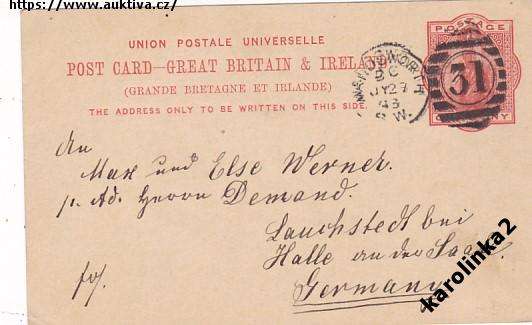 https://www.auktiva.cz/
UNION POSTALE UNIVERSELLE
POST CARD—GREAT BRITAIN & IRELAND
(GRANDE BRETAGNE ET IRLANDE)
THE ADDRESS ONLY TO BE WRITTEN ON THIS SIDE.
POSTAGE
WANDSWORTH
JY 27
S.W.
31
An
Max und Else Werner.
p. Ad. Herrn Demand.
Lauchstedt bei
Halle an der Saale.
Germany
karolinka2